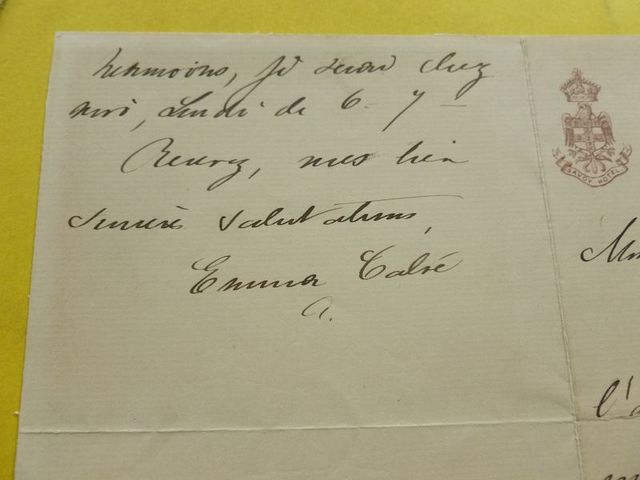 néanmoins, je serai chez
moi, Lundi de 6 - 7 -
Recevez, mes bien
sincères salutations,
Emma Calvé
SAVOY HOTEL
l'